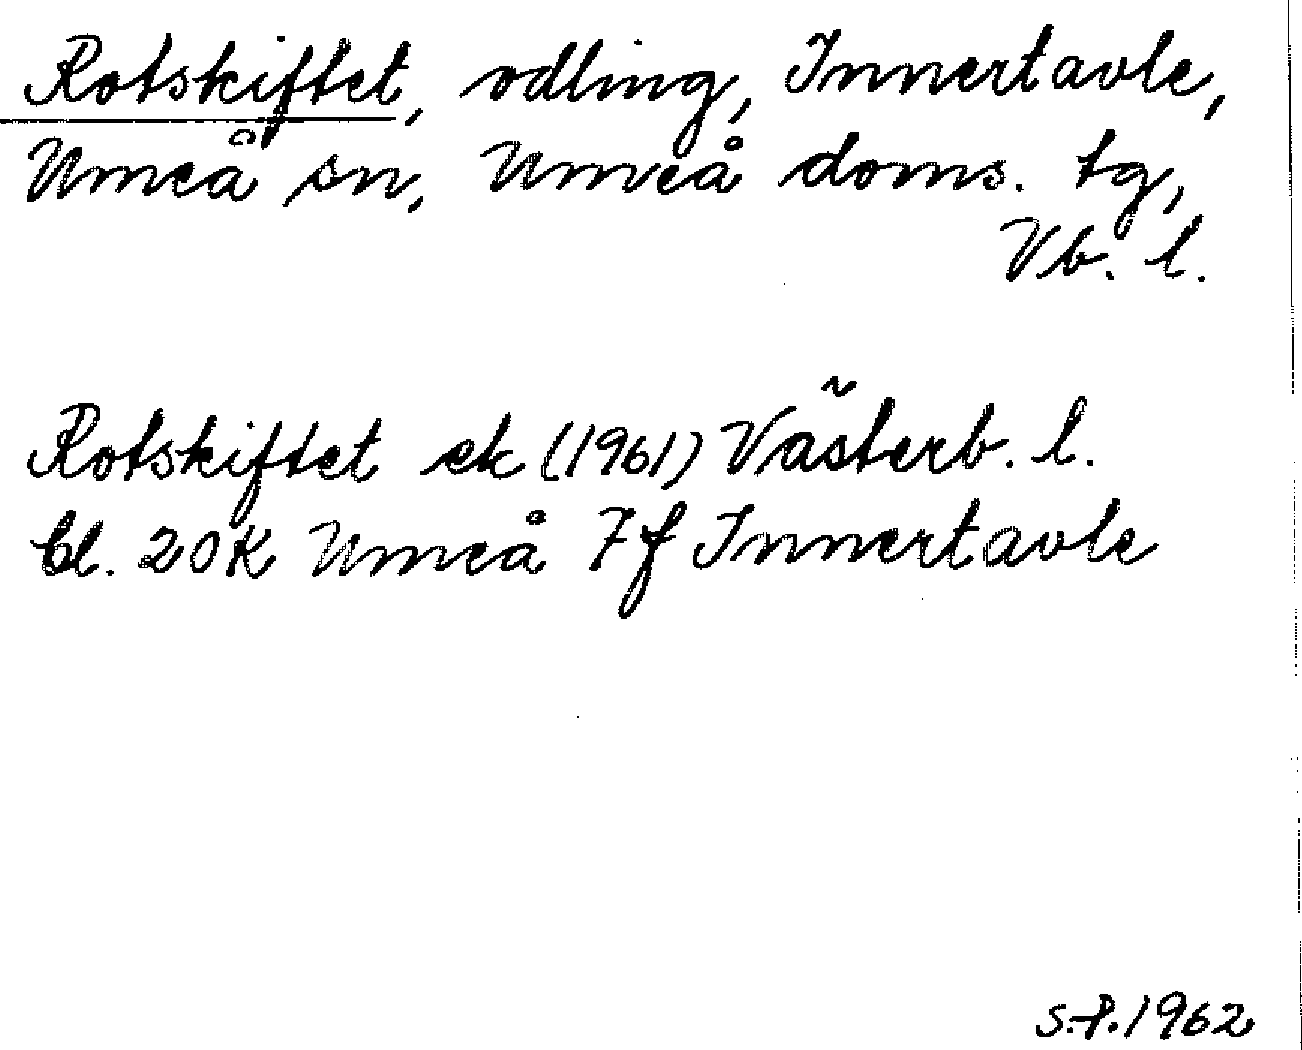 Rotskiftet, odling, Innertavle,
Umeå sn, Umeå doms. tg,
Vb. l.
Rotskiftet ek (1961) Västerb. l.
bl. 20K Umeå 7f Innertavle
S.P. 1962